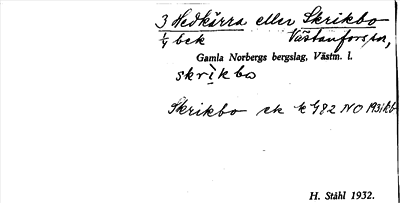 3 Nedkärra eller Skrikbo
1/4 bck Västanfors sn,
Gamla Norbergs bergslag, Västm. l.
skrìkbo
Skrikbo ek k G82 NO 1931 kb
H. Ståhl 1932.